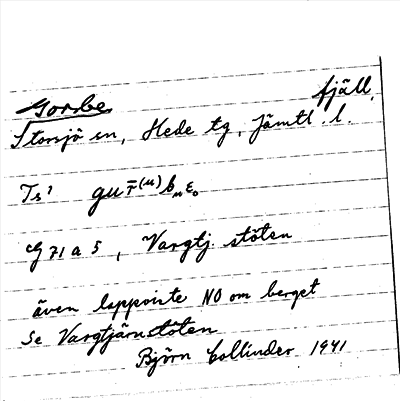 Gorrbe fjäll.
Storsjö sn, Hede tg, Jämtl. l.
Ts¹
G 71 a 5, Vargtj. stöten
även NO om berget
Se Vargtjärnstöten
Björn Collinder 1941